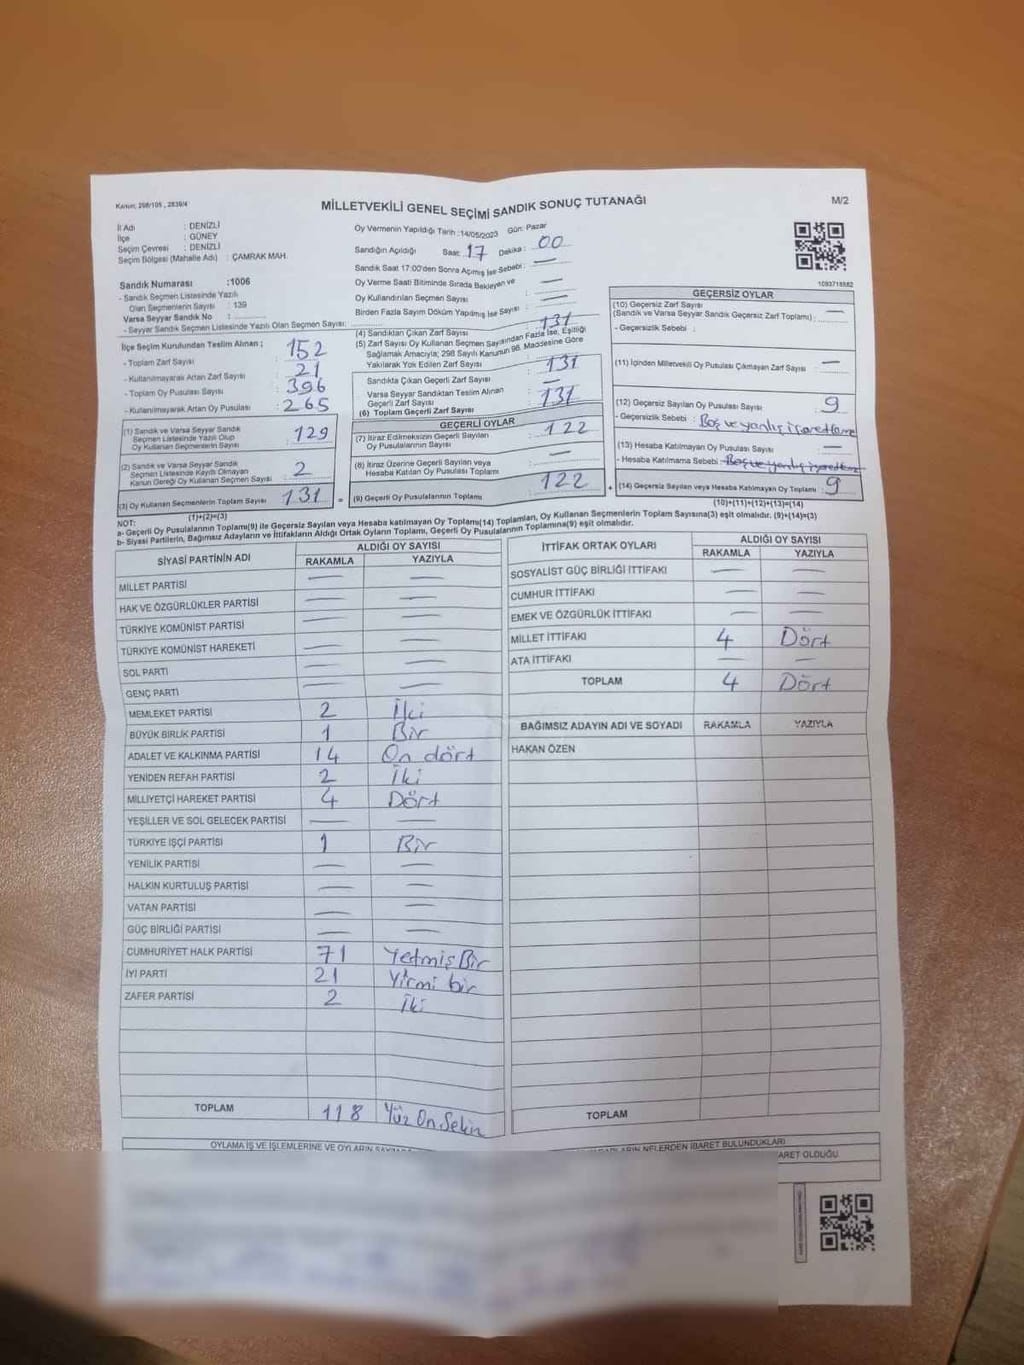 Kanun; 298/105 , 2839/4
MİLLETVEKİLİ GENEL SEÇİMİ SANDIK SONUÇ TUTANAĞI
M/2
İl Adı : DENİZLİ
İlçe : GÜNEY
Seçim Çevresi : DENİZLİ
Seçim Bölgesi (Mahalle Adı) : ÇAMRAK MAH.
Oy Vermenin Yapıldığı Tarih :14/05/2023 Gün: Pazar
Sandığın Açıldığı Saat: 17 Dakika : 00
Sandık Saat 17:00'den Sonra Açılmış İse Sebebi : —
Oy Verme Saati Bitiminde Sırada Bekleyen ve
Oy Kullandırılan Seçmen Sayısı : —
Birden Fazla Sayım Döküm Yapılmış İse Sayısı : —
1093718882
Sandık Numarası :1006
- Sandık Seçmen Listesinde Yazılı
Olan Seçmenlerin Sayısı : 139
Varsa Seyyar Sandık No :
- Seyyar Sandık Seçmen Listesinde Yazılı Olan Seçmen Sayısı:
İlçe Seçim Kurulundan Teslim Alınan ;
- Toplam Zarf Sayısı : 152
- Kullanılmayarak Artan Zarf Sayısı : 21
- Toplam Oy Pusulası Sayısı : 396
- Kullanılmayarak Artan Oy Pusulası : 265
(1) Sandık ve Varsa Seyyar Sandık
Seçmen Listesinde Yazılı Olup
Oy Kullanan Seçmenlerin Sayısı : 129
(2) Sandık ve Varsa Seyyar Sandık
Seçmen Listesinde Kayıtlı Olmayan
Kanun Gereği Oy Kullanan Seçmen Sayısı : 2
(3) Oy Kullanan Seçmenlerin Toplam Sayısı : 131
(1)+(2)=(3)
(4) Sandıktan Çıkan Zarf Sayısı : 131
(5) Zarf Sayısı Oy Kullanan Seçmen Sayısından Fazla İse, Eşitliği
Sağlamak Amacıyla; 298 Sayılı Kanunun 98. Maddesine Göre
Yakılarak Yok Edilen Zarf Sayısı : —
Sandıkta Çıkan Geçerli Zarf Sayısı : 131
Varsa Seyyar Sandıktan Teslim Alınan
Geçerli Zarf Sayısı : —
(6) Toplam Geçerli Zarf Sayısı : 131
GEÇERLİ OYLAR
(7) İtiraz Edilmeksizin Geçerli Sayılan
Oy Pusulası Sayısı : 122
(8) İtiraz Üzerine Geçerli Sayılan veya
Hesaba Katılan Oy Pusulası Toplamı : —
= (9) Geçerli Oy Pusulalarının Toplamı : 122
GEÇERSİZ OYLAR
(10) Geçersiz Zarf Sayısı
(Sandık ve Varsa Seyyar Sandık Geçersiz Zarf Toplamı) : —
- Geçersizlik Sebebi :
(11) İçinden Milletvekili Oy Pusulası Çıkmayan Zarf Sayısı : —
(12) Geçersiz Sayılan Oy Pusulası Sayısı : 9
- Geçersizlik Sebebi : Boş ve yanlış işaretleme
(13) Hesaba Katılmayan Oy Pusulası Sayısı : —
- Hesaba Katılmama Sebebi : Boş ve yanlış işaretleme
+ (14) Geçersiz Sayılan veya Hesaba Katılmayan Oy Toplamı : 9
(10)+(11)+(12)+(13)=(14)
NOT:
a- Geçerli Oy Pusulalarının Toplamı(9) ile Geçersiz Sayılan veya Hesaba katılmayan Oy Toplamı(14) Toplamları, Oy Kullanan Seçmenlerin Toplam Sayısına(3) eşit olmalıdır. (9)+(14)=(3)
b- Siyasi Partilerin, Bağımsız Adayların ve İttifakların Aldığı Ortak Oyların Toplamı, Geçerli Oy Pusulalarının Toplamına(9) eşit olmalıdır.
SİYASİ PARTİNİN ADI ALDIĞI OY SAYISI
RAKAMLA YAZIYLA
MİLLET PARTİSİ — —
HAK VE ÖZGÜRLÜKLER PARTİSİ — —
TÜRKİYE KOMÜNİST PARTİSİ — —
TÜRKİYE KOMÜNİST HAREKETİ — —
SOL PARTİ — —
GENÇ PARTİ — —
MEMLEKET PARTİSİ 2 İki
BÜYÜK BİRLİK PARTİSİ 1 Bir
ADALET VE KALKINMA PARTİSİ 14 On dört
YENİDEN REFAH PARTİSİ 2 İki
MİLLİYETÇİ HAREKET PARTİSİ 4 Dört
YEŞİLLER VE SOL GELECEK PARTİSİ — —
TÜRKİYE İŞÇİ PARTİSİ 1 Bir
YENİLİK PARTİSİ — —
HALKIN KURTULUŞ PARTİSİ — —
VATAN PARTİSİ — —
GÜÇ BİRLİĞİ PARTİSİ — —
CUMHURİYET HALK PARTİSİ 71 Yetmiş Bir
İYİ PARTİ 21 Yirmi bir
ZAFER PARTİSİ 2 İki
TOPLAM 118 Yüz On Sekiz
İTTİFAK ORTAK OYLARI ALDIĞI OY SAYISI
RAKAMLA YAZIYLA
SOSYALİST GÜÇ BİRLİĞİ İTTİFAKI — —
CUMHUR İTTİFAKI — —
EMEK VE ÖZGÜRLÜK İTTİFAKI — —
MİLLET İTTİFAKI 4 Dört
ATA İTTİFAKI — —
TOPLAM 4 Dört
BAĞIMSIZ ADAYIN ADI VE SOYADI RAKAMLA YAZIYLA
HAKAN ÖZEN
TOPLAM
OYLAMA İŞ VE İŞLEMLERİNE VE OYLARIN
NELERDEN İBARET BULUNDUKLARI
OLDUĞU